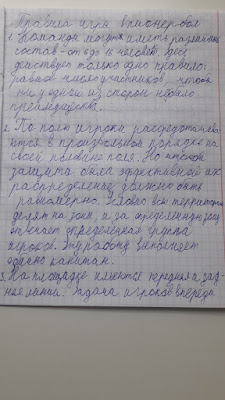 Правила игры в пионербол
1. Команды могут иметь различный
состав - от 3 до 8 человек. Здесь
действует только одно правило:
равное число участников, чтобы
ни у одной из сторон не было
преимущества.
2. По полю игроки рассредотачива-
ются в произвольном порядке на
своей половине поля. Но чтобы
защита была эффективной их
распределение должно быть
равномерно. Условно всю территорию
делят на зоны, и за определенную зону
отвечает определенная группа
игроков. Эту работу выполняет
обычно капитан.
3. На площадке имеются передняя и зад-
няя линии. Задача игроков впереди